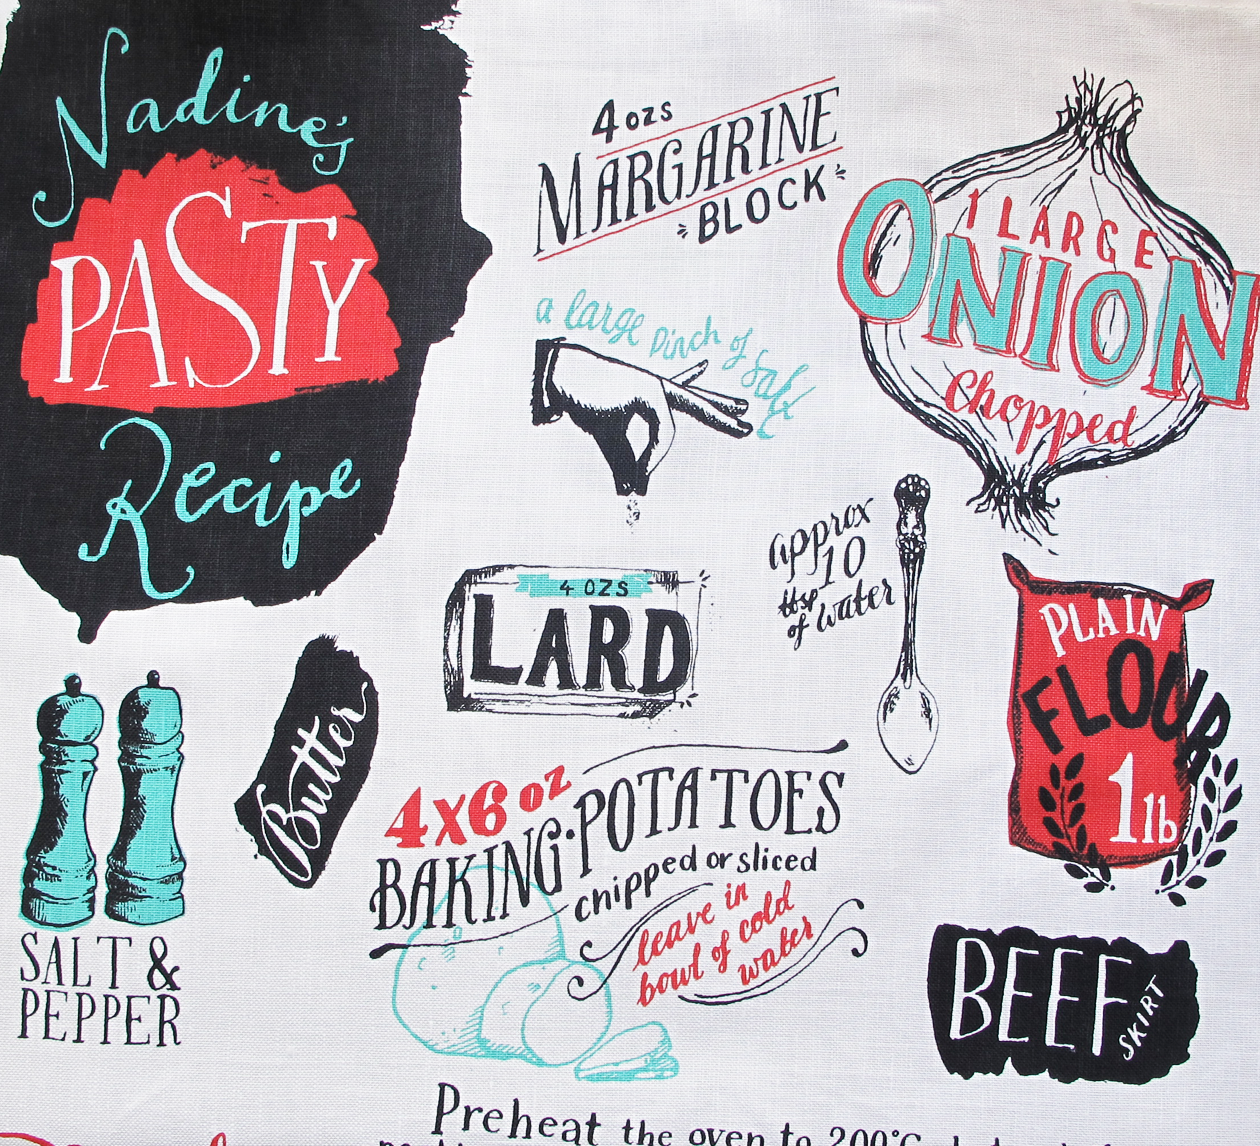 Nadine's
PASTY
Recipe
4 ozs
MARGARINE
BLOCK
1 LARGE
ONION
Chopped
a large pinch of salt
approx
10
ttsp
of water
4 OZS
LARD
PLAIN
FLOUR
1lb
Butter
SALT &
PEPPER
4x6 oz
BAKING·POTATOES
chipped or sliced
leave in
bowl of cold
water
BEEF
SKIRT
Preheat the oven to 200°C